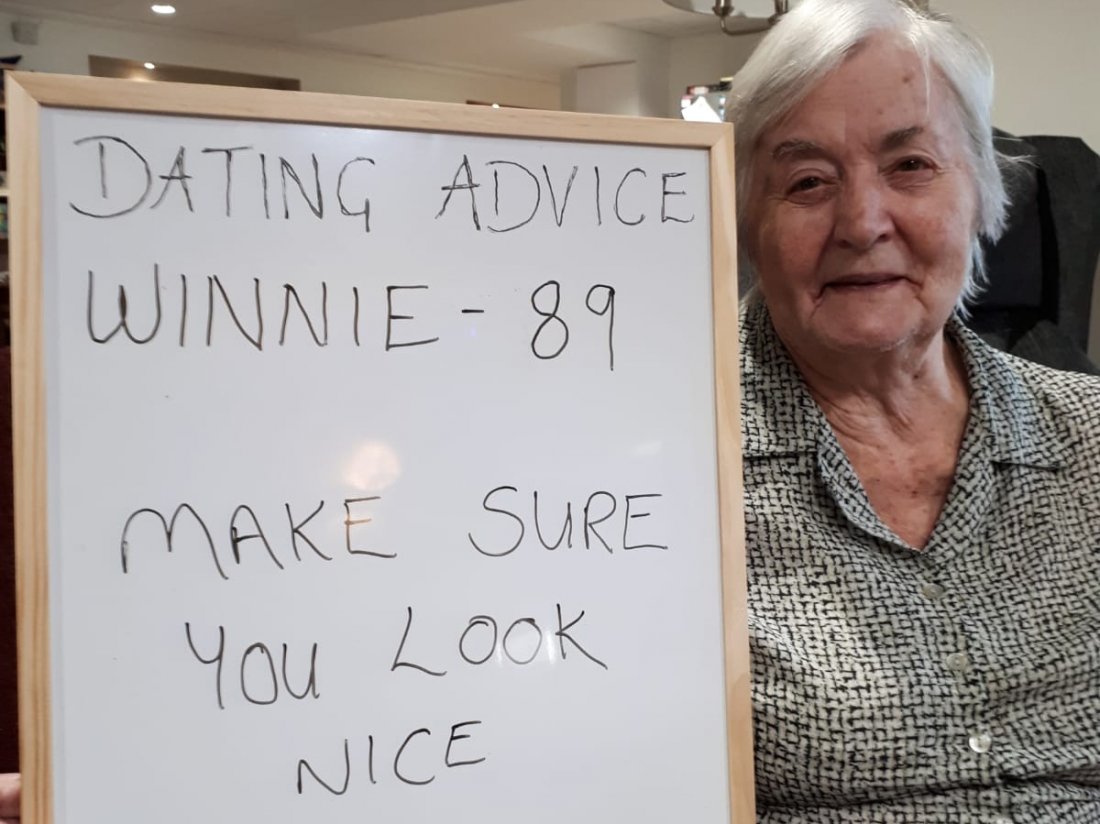 DATING ADVICE
WINNIE - 89
MAKE SURE
YOU LOOK
NICE